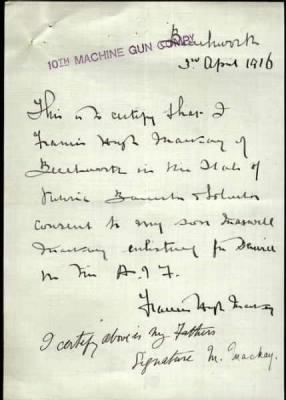 Beechworth
10TH MACHINE GUN COMPY
3rd April 1916
This is to certify that I
Francis Hugh Mackay of
Beechworth in the State of
Victoria Barrister & Solicitor
consent to my son Maxwell
Mackay enlisting for Service
in the A.I.F.
Francis Hugh Mackay
I certify above is my Fathers
Signature M. Mackay.